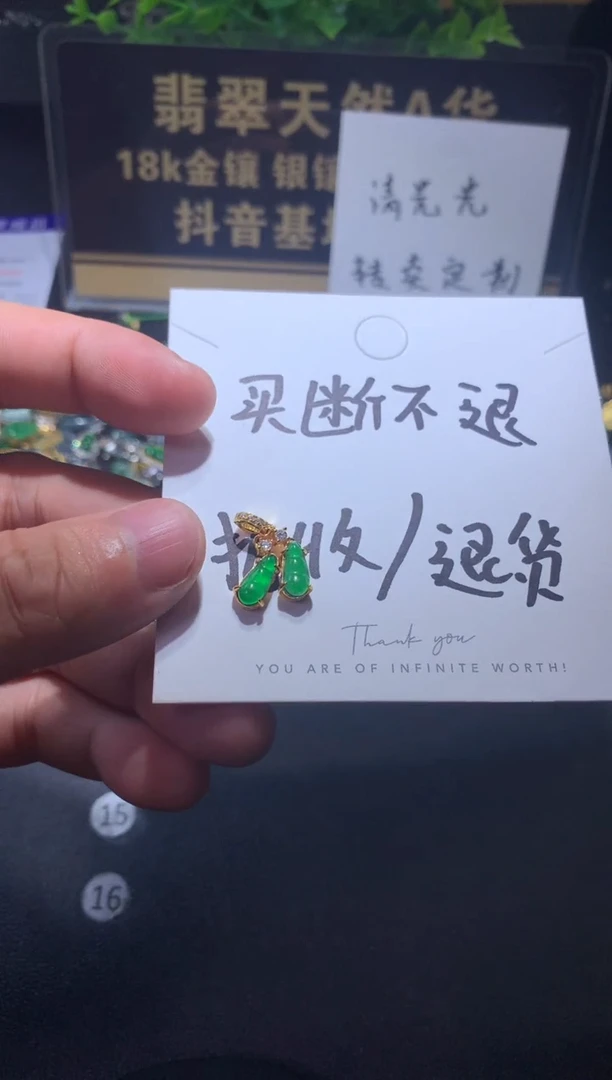 翡翠天然A货
18k金镶 银镶
抖音基地
清晃光
转卖定制
买断不退
拒收/退货
Thank you
YOU ARE OF INFINITE WORTH!
15
16